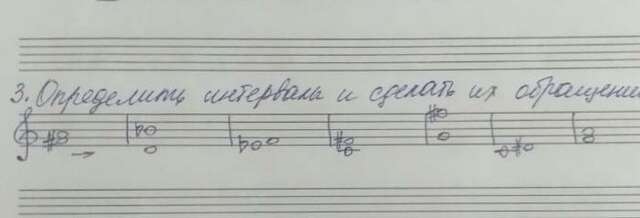 3. Определить интервалы и сделать их обращени